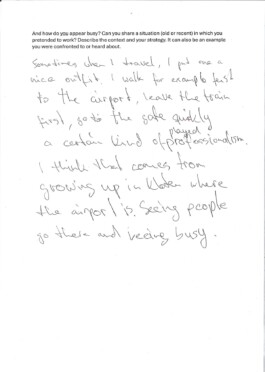 And how do you appear busy? Can you share a situation (old or recent) in which you
pretended to work? Describe the context and your strategy. It can also be an example
you were confronted to or heard about.
Sometimes when I travel, I put on a
nice outfit, I walk for example fast
to the airport, leave the train
first, go to the gate quickly
played
a certain kind of professionalism.
I think that comes from
growing up in Kloten where
the airport is. Seeing people
go there and being busy.